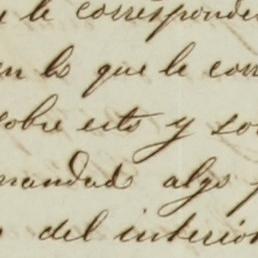 le corresponde
en lo que le con
sobre esto y so
mandado algo
del interior